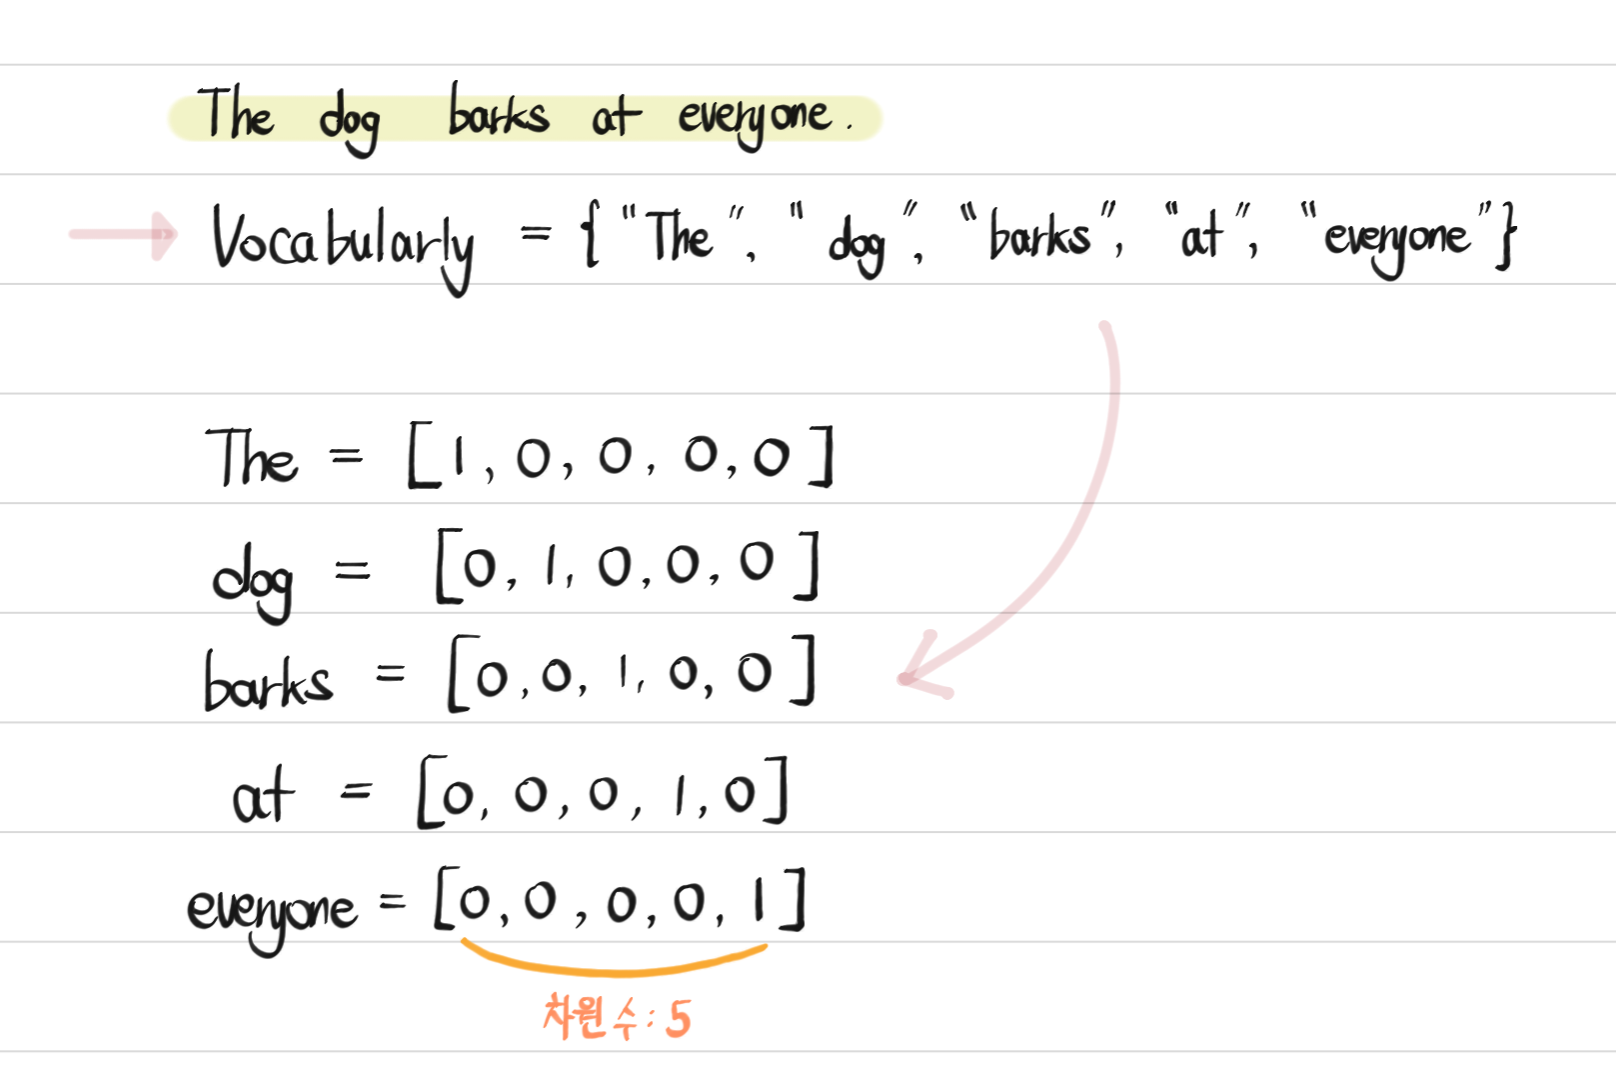 The dog barks at everyone.
Vocabularly = {"The", "dog", "barks", "at", "everyone"}
The = [1, 0, 0, 0, 0]
dog = [0, 1, 0, 0, 0]
barks = [0, 0, 1, 0, 0]
at = [0, 0, 0, 1, 0]
everyone = [0, 0, 0, 0, 1]
차원 수: 5